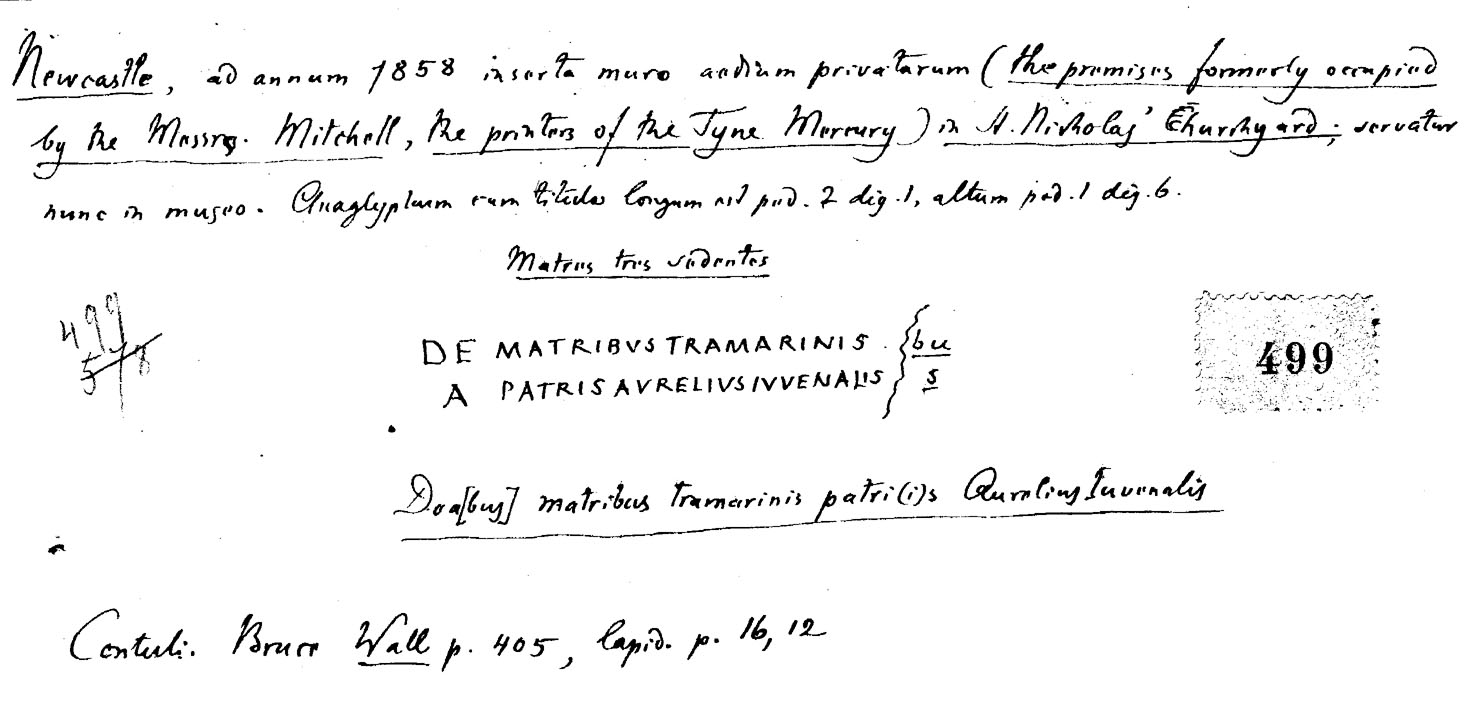 Newcastle, ad annum 1858 inserta muro aedium privatarum (the premises formerly occupied
by the Messrs. Mitchell, the printers of the Tyne Mercury) in St. Nicholas' Churchyard; servatur
nunc in museo. Anaglyptum cum titulo longum est ped. 2 dig. 1, altum ped. 1 dig. 6.
Matres tres sedentes
499
578
DE MATRIBVS TRAMARINIS . bu
A PATRIS AVRELIVS IVVENALIS s
499
Dea[bus] matribus tramarinis patri(i)s Aurelius Iuvenalis
Contuli. Bruce Wall p. 405, lapid. p. 16, 12